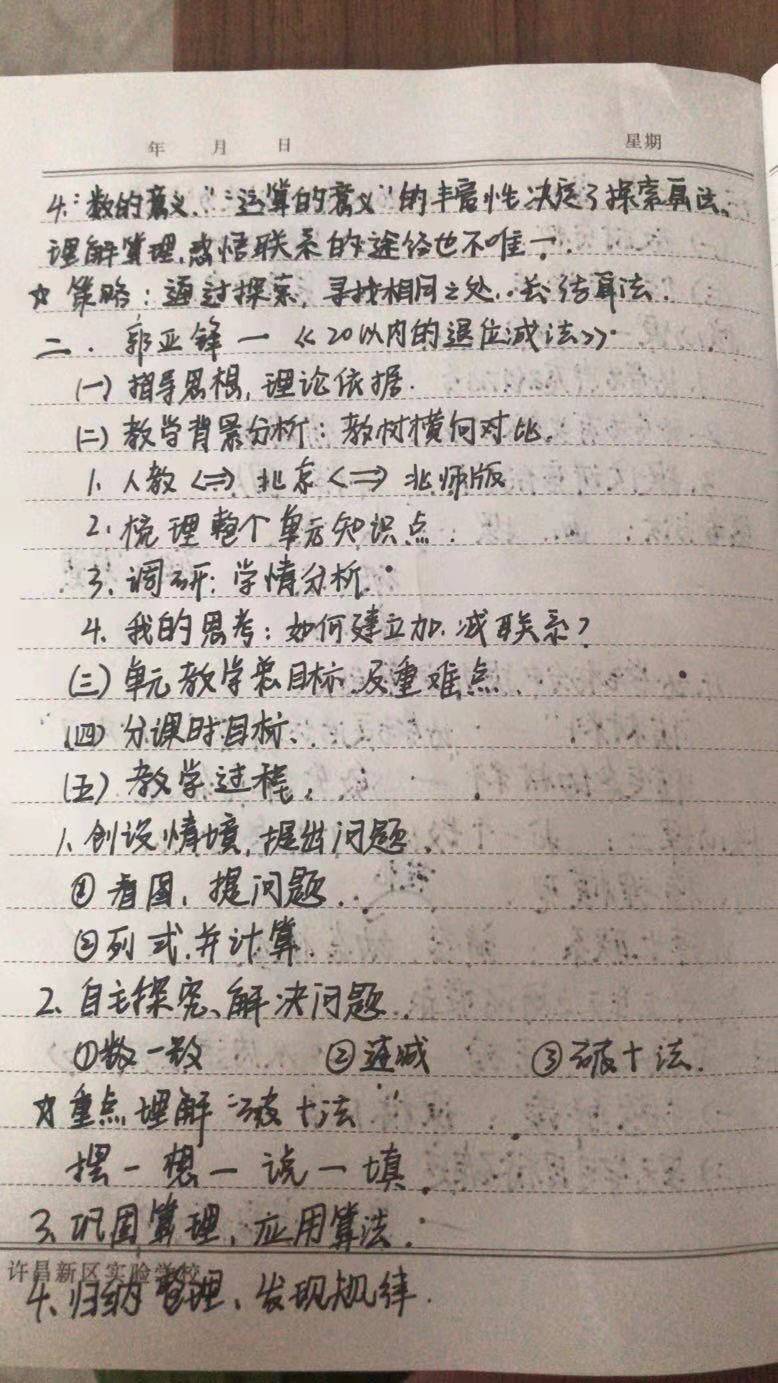 年 月 日 星期
4."数的意义","运算的意义"的丰富性决定了探索算法、
理解算理,感悟联系的途径也不唯一.
☆ 策略:通过探索,寻找相同之处,总结算法.
二. 郭亚锋—《20以内的退位减法》
(一)指导思想,理论依据.
(二)教学背景分析:教材横向对比.
1. 人教<=>北京<=>北师版
2. 梳理整个单元知识点.
3. 调研:学情分析.
4. 我的思考:如何建立加.减联系?
(三)单元教学总目标及重难点.
(四)分课时目标.
(五)教学过程.
1. 创设情境,提出问题.
①看图,提问题.
②列式,并计算.
2. 自主探究、解决问题.
①数一数 ②连减 ③破十法.
☆重点理解"破十法
摆—想—说—填.
3. 巩固算理,应用算法.
许昌新区实验学校
4. 归纳整理、发现规律.